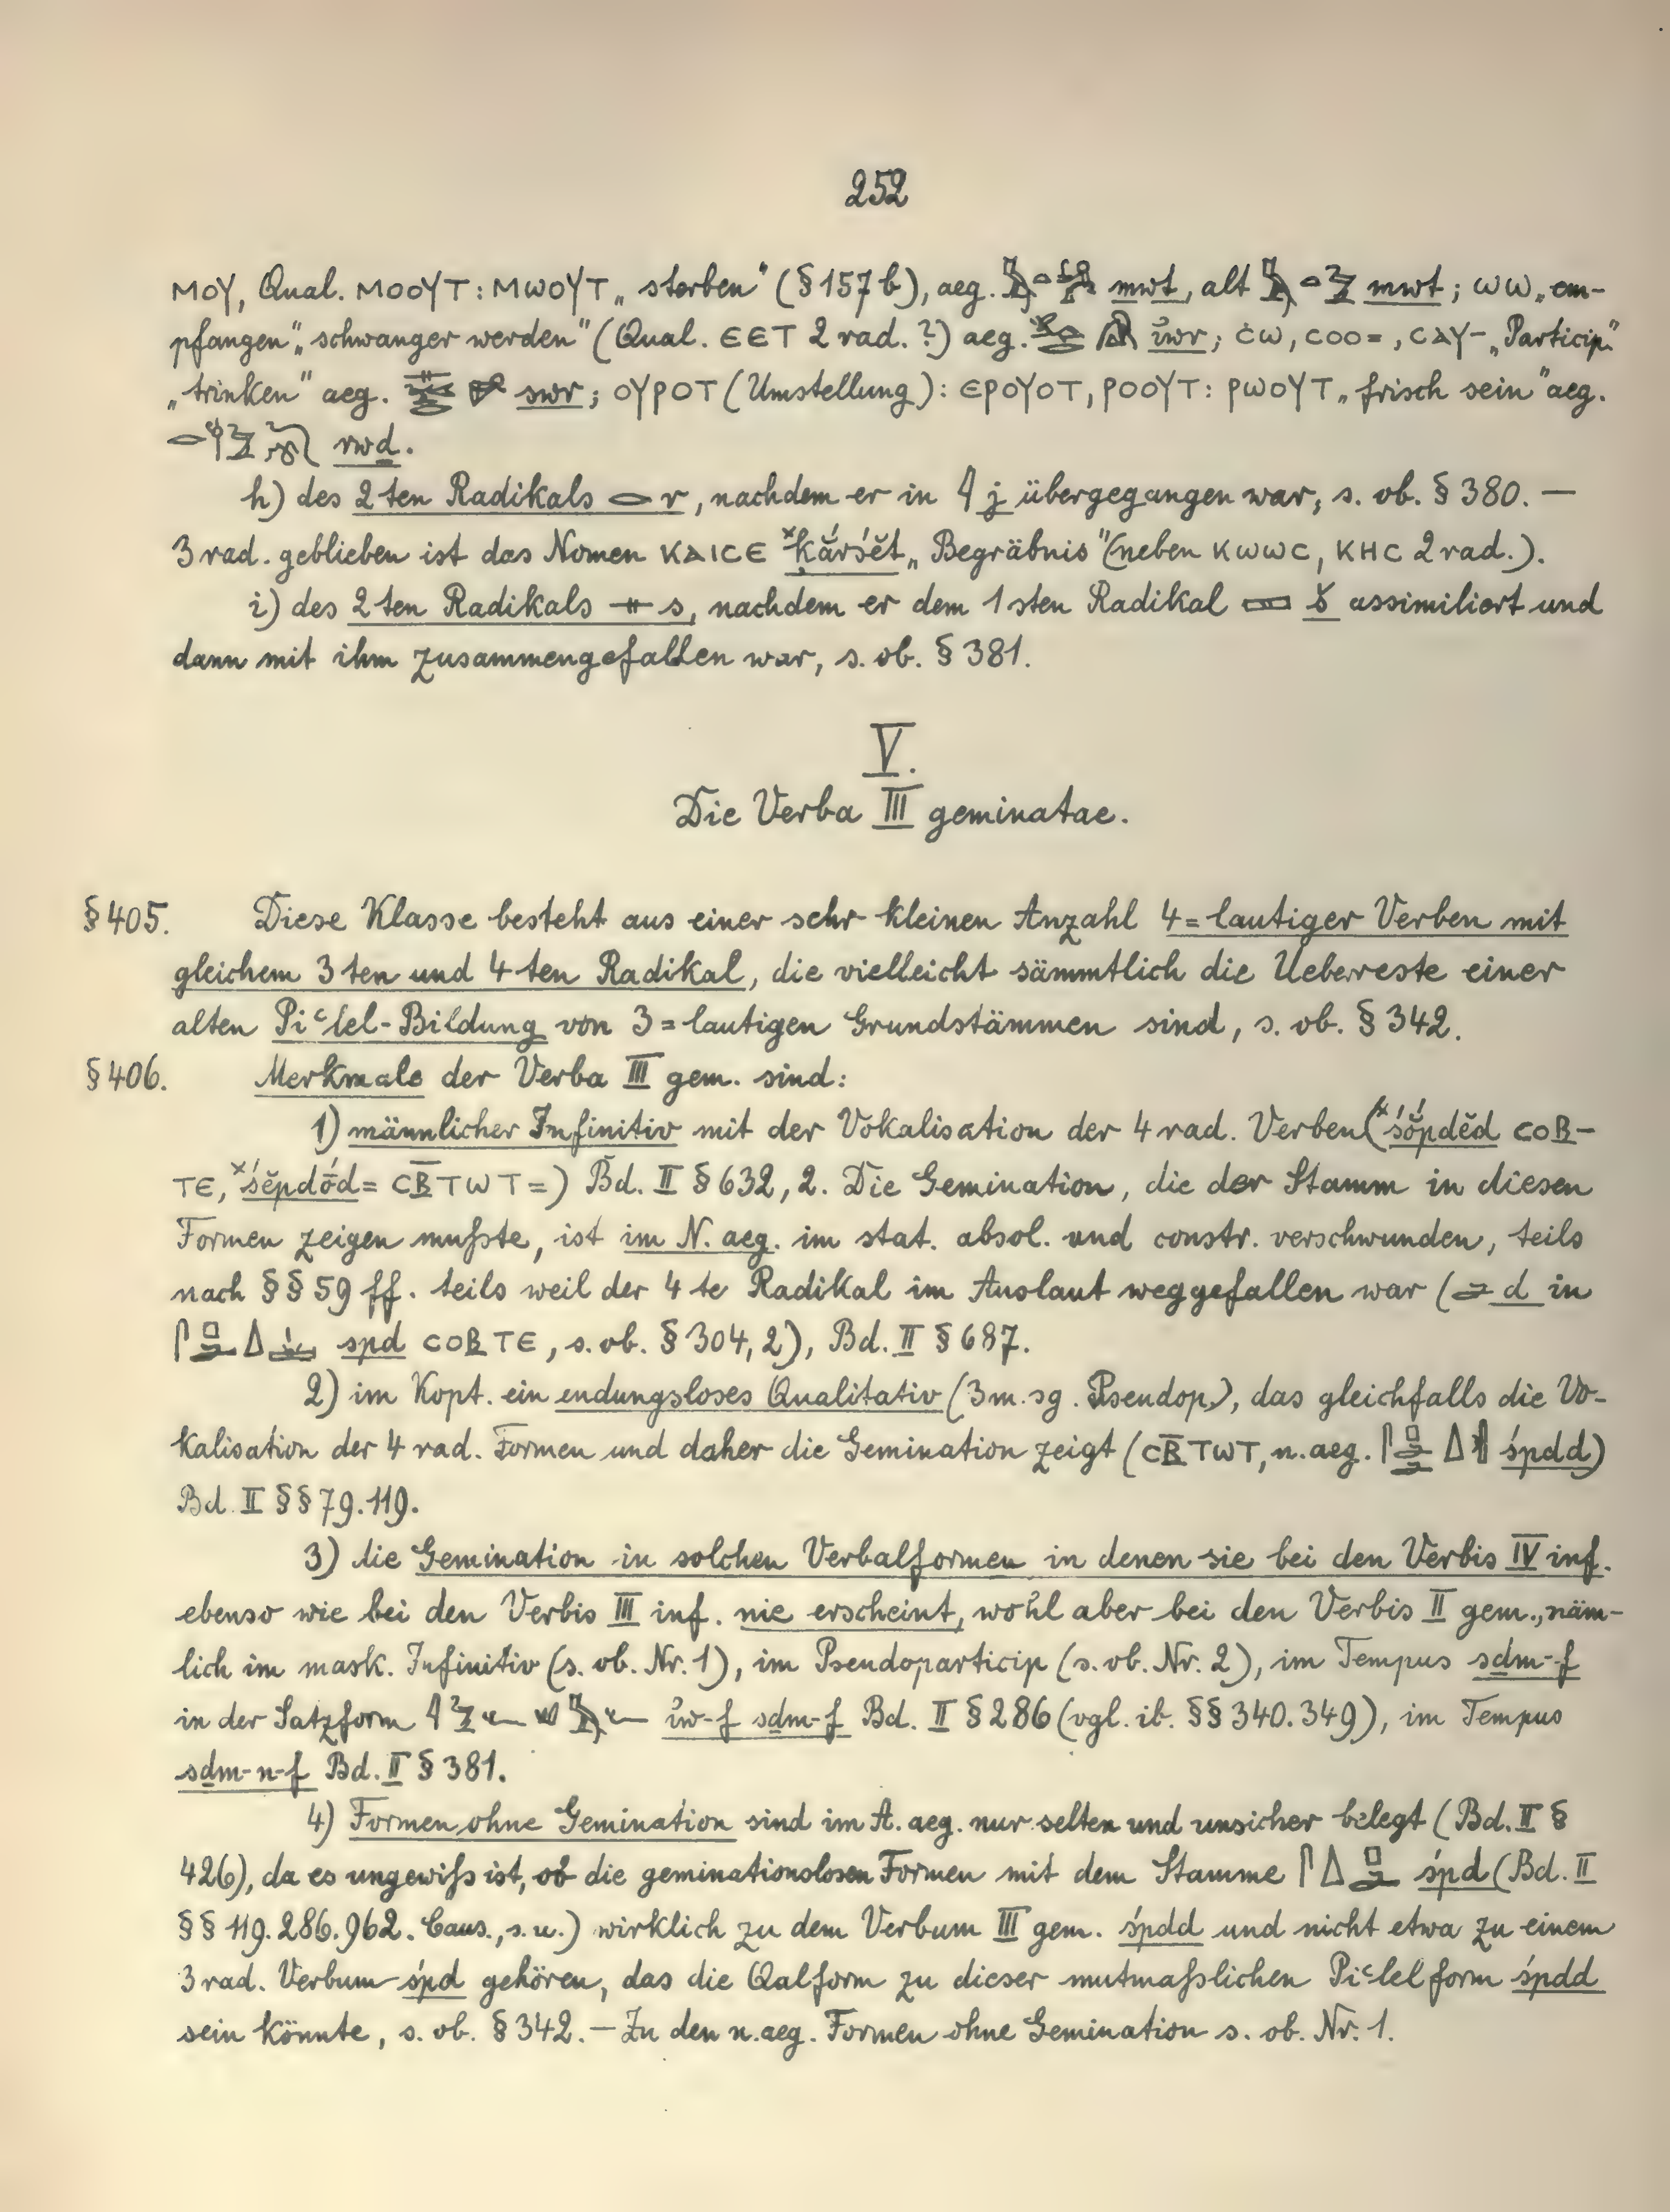 252
ⲙⲟⲩ, Qual. ⲙⲟⲟⲩⲧ : ⲙⲱⲟⲩⲧ „sterben“ (§ 157 b), aeg. mwt, alt mwt; ⲱⲱ „em-
pfangen“ „schwanger werden“ (Qual. ⲉⲉⲧ 2 rad. ?) aeg. iwr; ⲥⲱ, ⲥⲟⲟ=, ⲥⲁⲩ- „Particip.“
„trinken“ aeg. swr; ⲟⲩⲣⲟⲧ (Umstellung) : ⲉⲣⲟⲩⲟⲧ, ⲣⲟⲟⲩⲧ : ⲣⲱⲟⲩⲧ „frisch sein“ aeg.
rwḏ.
h) des 2ten Radikals 𓂋 r, nachdem er in 𓇋 j übergegangen war, s. ob. § 380. —
3 rad. geblieben ist das Nomen ⲕⲁⲓⲥⲉ „Begräbnis“ (neben ⲕⲱⲱⲥ, ⲕⲏⲥ 2 rad.).
i) des 2ten Radikals 𓊃 s, nachdem er dem 1sten Radikal 𓈙 š assimiliert und
dann mit ihm zusammengefallen war, s. ob. § 381.
V.
Die Verba III geminatae.
§ 405. Diese Klasse besteht aus einer sehr kleinen Anzahl 4=lautiger Verben mit
gleichem 3ten und 4ten Radikal, die vielleicht sämmtlich die Uebereste einer
alten Piʿlel-Bildung von 3=lautigen Grundstämmen sind, s. ob. § 342.
§ 406. Merkmale der Verba III gem. sind:
1) männlicher Infinitiv mit der Vokalisation der 4 rad. Verben (ˣśŏ́pdĕd ⲥⲟⲃ-
ⲧⲉ, ˣśĕpdṓd= ⲥⲃ̅ⲧⲱⲧ=) Bd. II § 632, 2. Die Gemination, die der Stamm in diesen
Formen zeigen mußte, ist im N. aeg. im stat. absol. und constr. verschwunden, teils
nach §§ 59 ff. teils weil der 4te Radikal im Auslaut weggefallen war (𓂧 d in
śpd ⲥⲟⲃⲧⲉ, s. ob. § 304, 2), Bd. II § 687.
2) im Kopt. ein endungsloses Qualitativ (3 m. sg. Pseudop.), das gleichfalls die Vo-
kalisation der 4 rad. Formen und daher die Gemination zeigt (ⲥⲃ̅ⲧⲱⲧ, n. aeg. śpdd)
Bd. II §§ 79. 119.
3) die Gemination in solchen Verbalformen in denen sie bei den Verbis IV inf.
ebenso wie bei den Verbis III inf. nie erscheint, wohl aber bei den Verbis II gem., näm-
lich im mask. Infinitiv (s. ob. Nr. 1), im Pseudoparticip (s. ob. Nr. 2), im Tempus sḏm-f
in der Satzform iw-f sḏm-f Bd. II § 286 (vgl. ib. §§ 340. 349), im Tempus
sḏm-n-f Bd. II § 381.
4) Formen ohne Gemination sind im A. aeg. nur selten und unsicher belegt (Bd. II §
426), da es ungewiß ist, ob die geminationslosen Formen mit dem Stamme śpd (Bd. II
§§ 119. 286. 962. Caus., s. u.) wirklich zu dem Verbum III gem. śpdd und nicht etwa zu einem
3 rad. Verbum śpd gehören, das die Qalform zu dieser mutmaßlichen Piʿlelform śpdd
sein könnte, s. ob. § 342. — Zu den n. aeg. Formen ohne Gemination s. ob. Nr. 1.